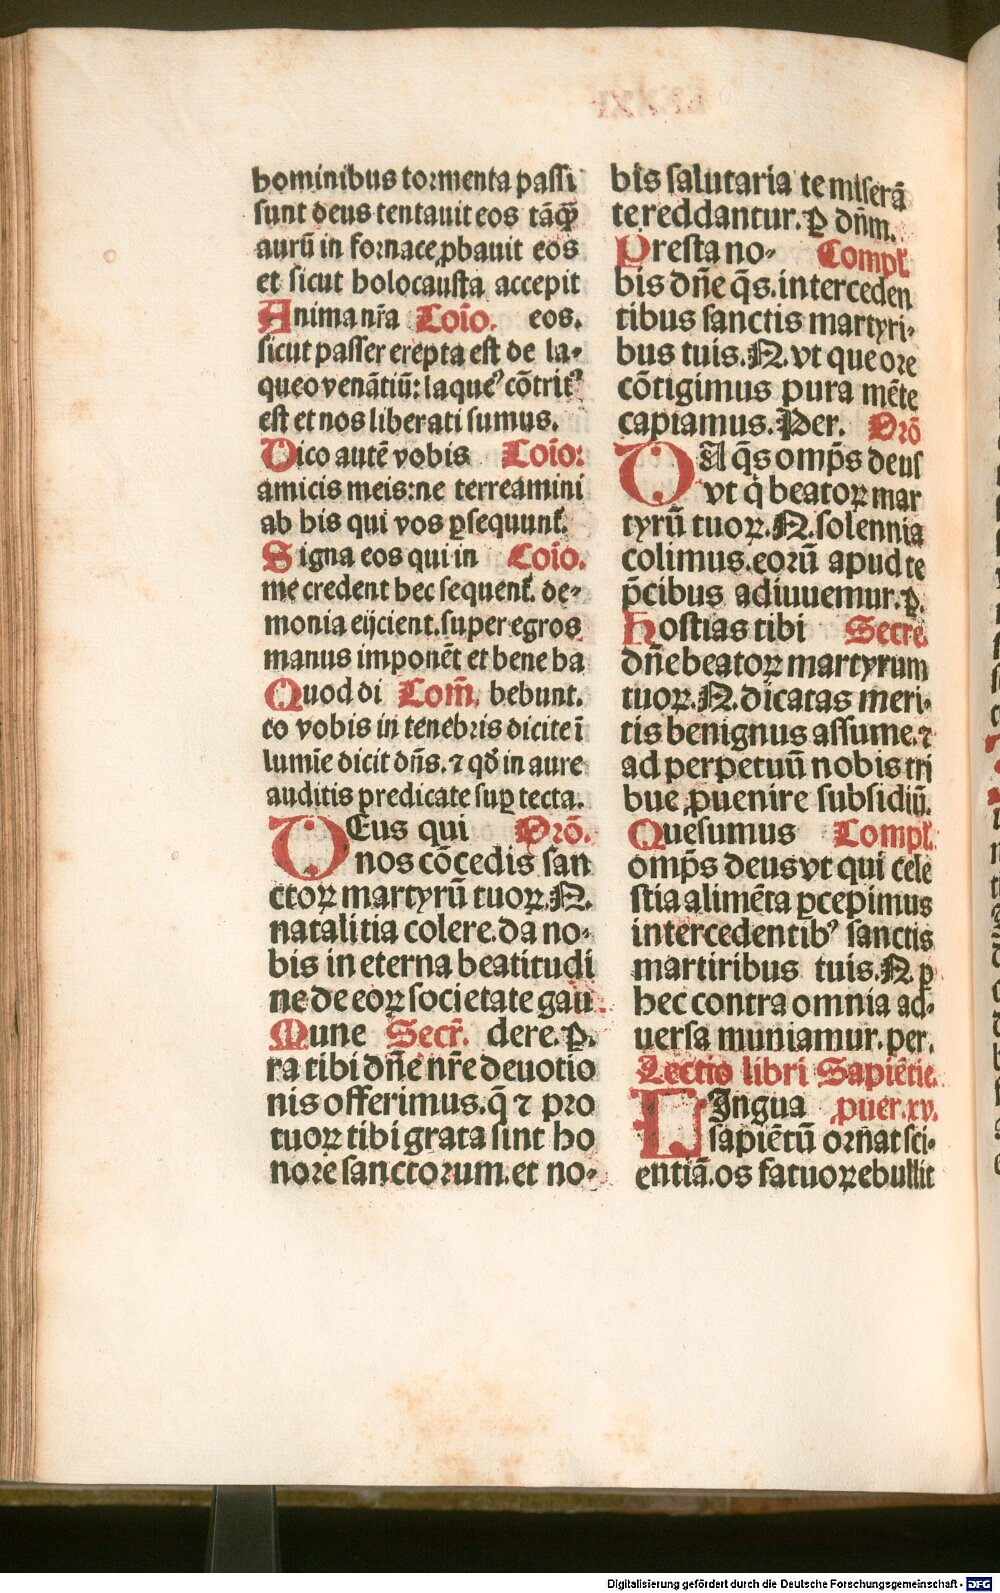 hominibus tormenta passi
sunt deus tentauit eos tãꝙ̃
aurũ in fornace ꝓbauit eos
et sicut holocausta accepit
Anima nr̃a Cõio. eos.
sicut passer erepta est de la-
queo venãtiũ: laqueꝰ cõtritꝰ
est et nos liberati sumus.
Dico autẽ vobis Cõio:
amicis meis: ne terreamini
ab his qui vos ꝑsequunt᷑.
Signa eos qui in Cõio.
me credent hec sequent᷑. de-
monia eijcient. super egros
manus imponẽt et bene ha
Quod di Com̃. bebunt.
co vobis in tenebris dicite ĩ
lumĩe dicit dñs. ⁊ qđ in aure
auditis predicate suꝑ tecta.
DEus qui Orõ.
nos cõcedis san
ctoꝝ martyrũ tuoꝝ. N.
natalitia colere. da no-
bis in eterna beatitudi
ne de eoꝝ societate gau
Mune Secr̃. dere. ꝑ.
ra tibi dñe nr̃e deuotio
nis offerimus. q̃ ⁊ pro
tuoꝝ tibi grata sint ho
nore sanctorum. et no-
bis salutaria te miserã
te reddantur. ꝑ dñm.
Presta no- Compl̃.
bis dñe q̃s. interceden
tibus sanctis martyri-
bus tuis. N. vt que ore
cõtigimus pura mẽte
capiamus. Per. Orõ
DA q̃s omp̃s deus
vt q̇ beatoꝝ mar
tyrũ tuoꝝ. N. solennia
colimus. eorũ apud te
p̃cibus adiuuemur. ꝑ.
Hostias tibi Secre.
dñe beatoꝝ martyrum
tuoꝝ. N. dicatas meri-
tis benignus assume. ⁊
ad perpetuũ nobis tri
bue ꝓuenire subsidiũ.
Quesumus Compl̃.
omp̃s deus vt qui cele
stia alimẽta ꝑcepimus
intercedentibꝰ sanctis
martiribus tuis. N. ꝑ
hec contra omnia ad-
uersa muniamur. per.
Lectio libri Sapiẽtie.
LIngua ꝓuer. xv.
sapiẽtũ ornat sci-
entiã. os fatuoꝝ ebullit
Digitalisierung gefördert durch die Deutsche Forschungsgemeinschaft - DFG